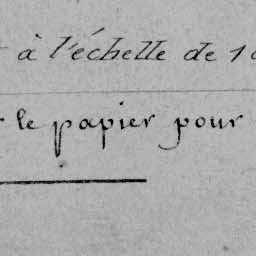 à l'échelle de 1
le papier pour